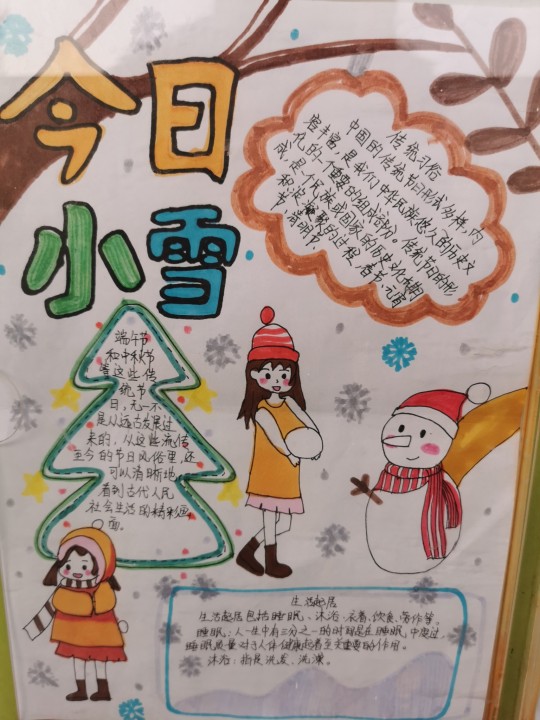 今日
小雪
传统习俗
中国的传统节日形式多样,内
容丰富,是我们中华民族悠久的历史文
化的一个重要的组成部分。传统节日的形
成,是一个民族或国家的历史文化长期
积淀凝聚的过程,春节、元宵
节、清明节、
端午节
和中秋节
等这些传
统节
日,无一不
是从远古发展过
来的,从这些流传
至今的节日风俗里,还
可以清晰地
看到古代人民
社会生活的精彩画
面。
生活起居
生活起居包括睡眠、沐浴、衣着、饮食、劳作等。
睡眠:人一生中有三分之一的时间是在睡眠中度过
睡眠质量对于人体健康起着至关重要的作用。
沐浴:指是洗发、洗澡。